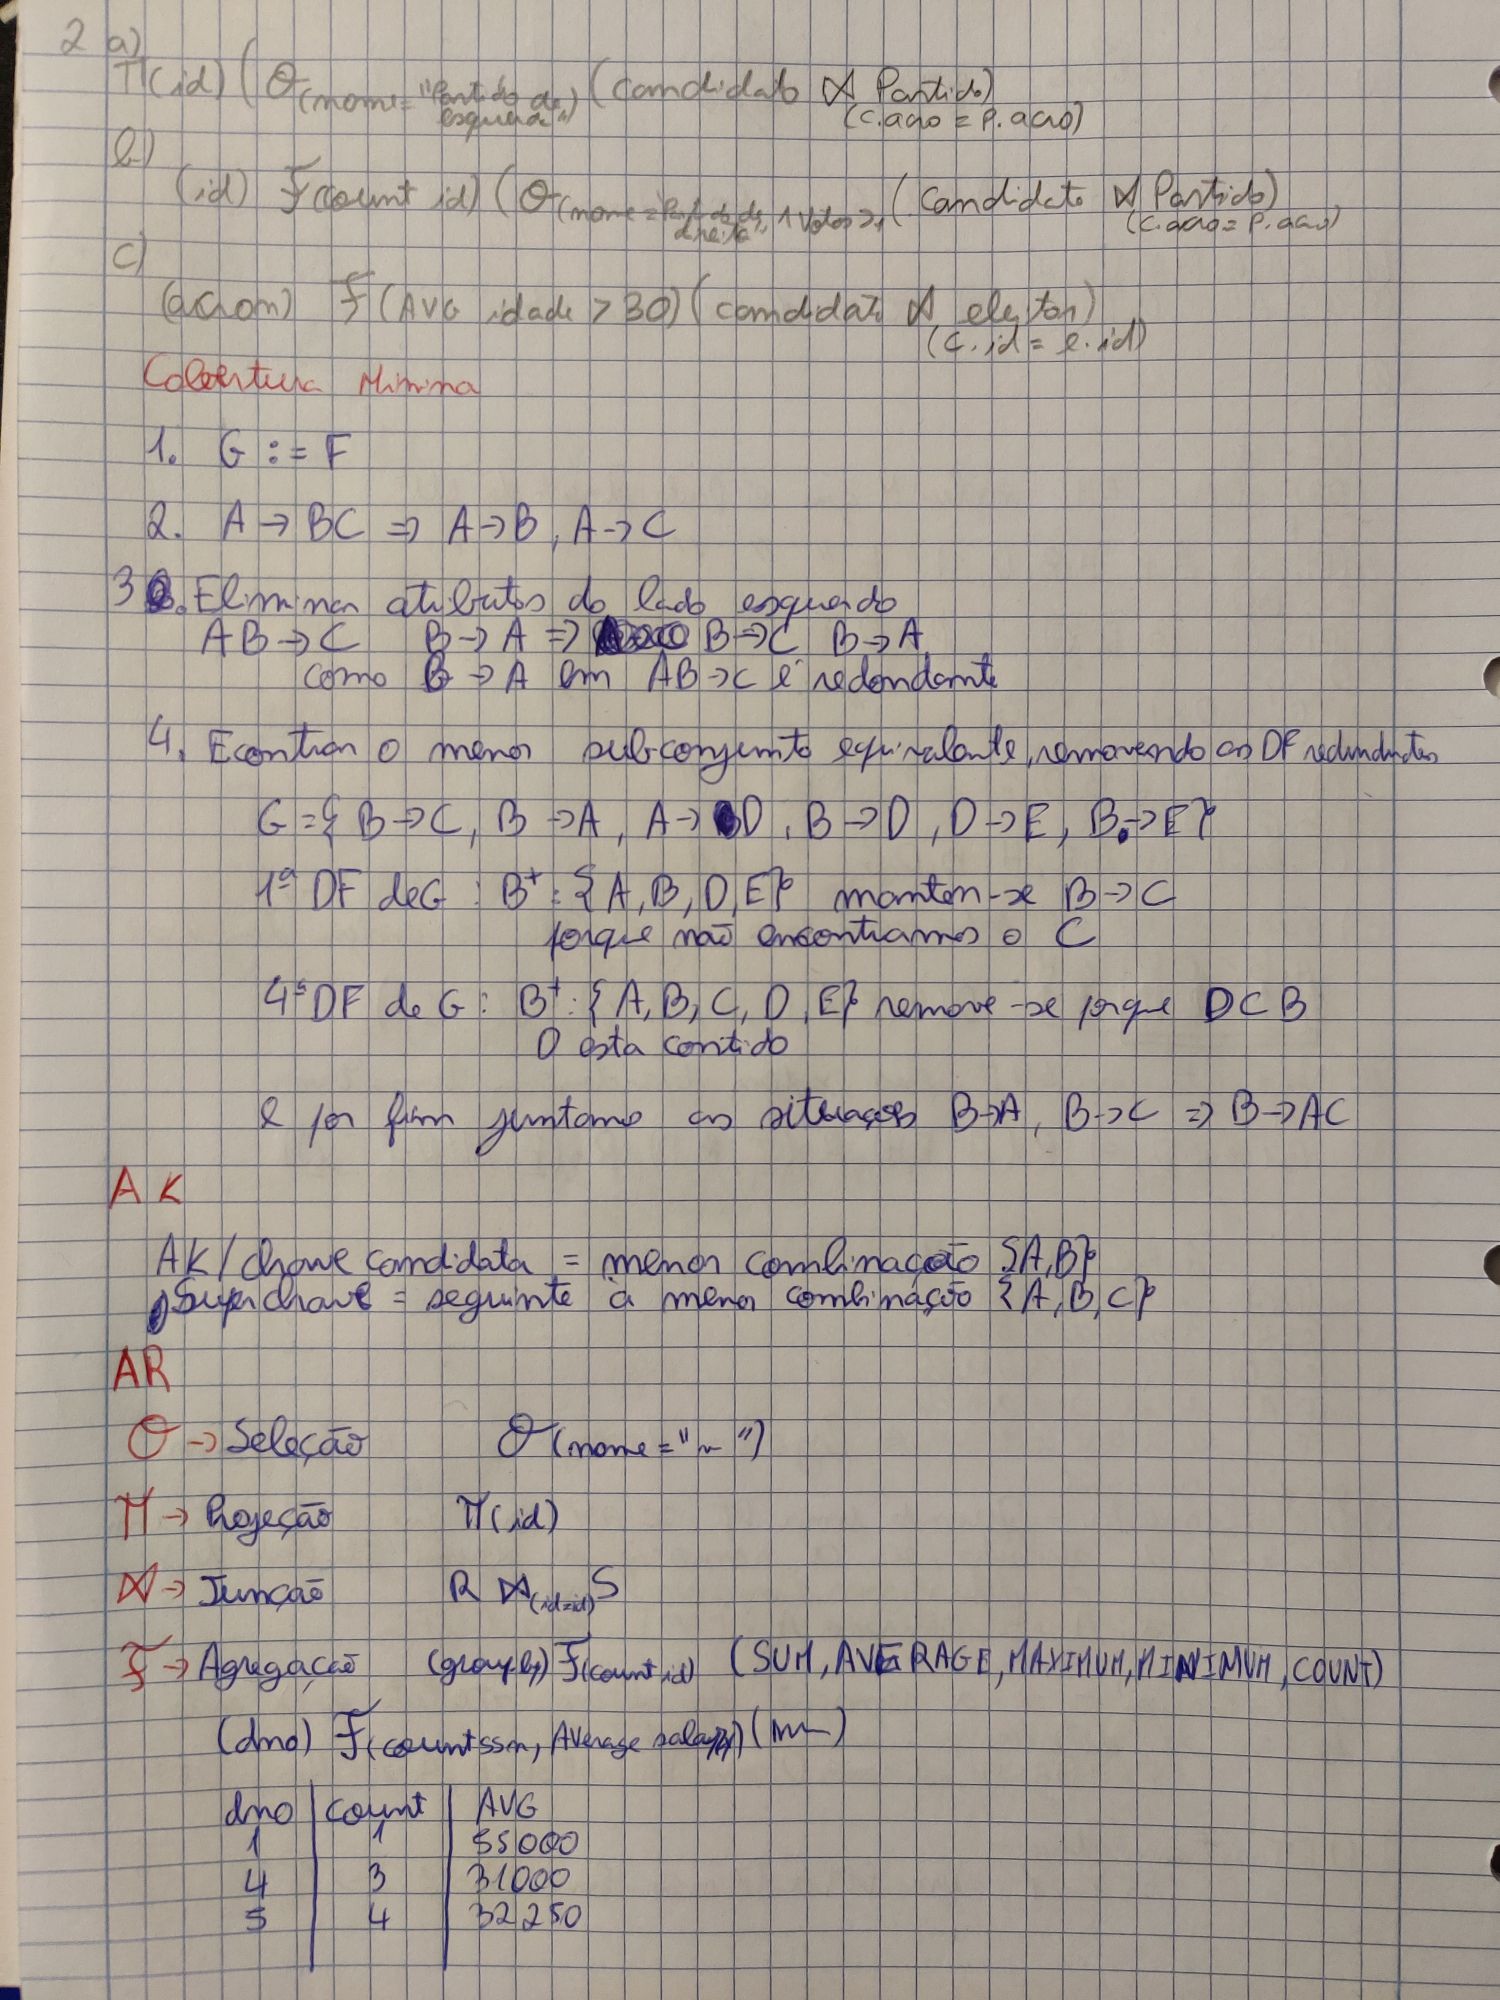 2 a)
π(id) (σ(nome="Partido de (candidato ⋈ Partido)
esquerda") (c.acro = p.acro)
b)
(id) ℱ(count id) (σ(nome=Partido de ∧ Votos > (candidato ⋈ Partido)
direita" (c.acro = p.acro)
c)
(acron) ℱ(AVG idade > 30) (candidato ⋈ eleitor)
(c.id = e.id)
Cobertura Minina
1. G := F
2. A → BC => A → B, A → C
3 . Eliminar atributos do lado esquerdo
AB → C B → A => B → C B → A
como B → A em AB → C é redondante
4. Econtrar o menor sub-conjunto equivalente, removendo as DF redundates
G = { B → C, B → A, A → D, B → D, D → E, B → E}
1ª DF de G : B⁺ : {A, B, D, E} manten-se B → C
porque não encontramos o C
4ª DF de G : B⁺ : {A, B, C, D, E} remove-se porque D C B
D esta contido
e por fim juntamo as situaçoes B → A, B → C => B → AC
AK
AK / chave candidata = menor combinação {A, B}
Superchave = seguinte à menor combinação {A, B, C}
AR
σ → Seleção σ(nome = "~")
π → Projeção π(id)
⋈ → Junção R ⋈(id=id) S
ℱ → Agregação (group by) ℱ(count id) (SUM, AVERAGE, MAXIMUM, MINIMUM, COUNT)
(dno) ℱ(count ssn, Average salary) (~)
dno | count | AVG
1 | 1 | 55000
4 | 3 | 31000
5 | 4 | 32250